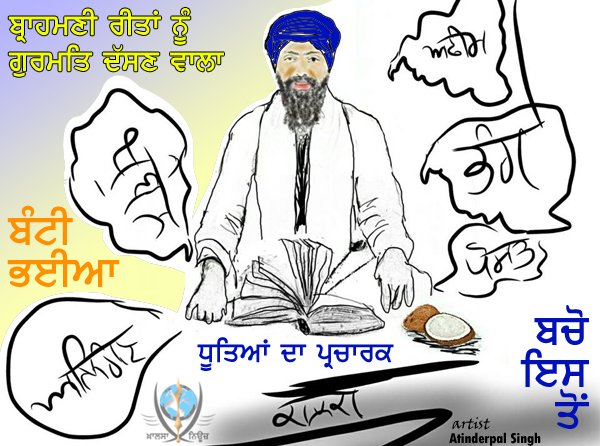 ਬ੍ਰਾਹਮਣੀ ਰੀਤਾਂ ਨੂੰ
ਗੁਰਮਤਿ ਦੱਸਣ ਵਾਲਾ
ਅਫੀਮ
ਭੰਗ
ਬੰਟੀ
ਭਈਆ
ਪੋਸਤ
ਅਲਿੰਗਣ
ਧੂਤਿਆਂ ਦਾ ਪ੍ਰਚਾਰਕ
ਬਚੋ
ਇਸ
ਤੋਂ
ਖ਼ਾਲਸਾ ਨਿਊਜ਼
artist
Atinderpal Singh